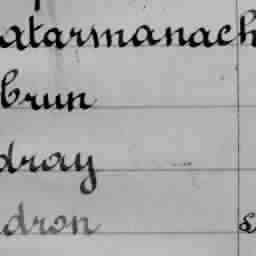 atarmanach
brun
dray
dron